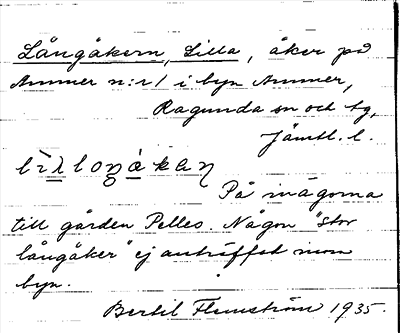 Långåkern, Lilla, åker på
Ammer n:r 1 i byn Ammer,
Ragunda sn och tg,
Jämtl. l.
På mågorna
till gården Pelles. Någon "stor
långåker" ej anträffat inom
byn.
Bertil Flemström 1935.